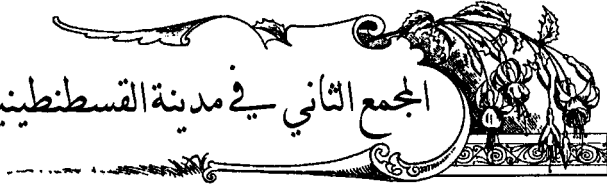 المجمع الثاني في مدينة القسطنطيني